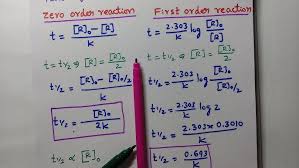 Zero order reaction
t = [R]₀ - [R] / k
t = t½ ⇒ [R] = [R]₀ / 2
t½ = [R]₀ - [R]₀/2 / k
t½ = [R]₀ / 2k
t½ ∝ [R]₀
First order reaction
t = 2.303 / k log [R]₀ / [R]
t = t½ ⇒ [R] = [R]₀ / 2
t½ = 2.303 / k log [R]₀ / [R]₀/2
t½ = 2.303 / k log 2
t½ = 2.303 x 0.3010 / k
t½ = 0.693 / k